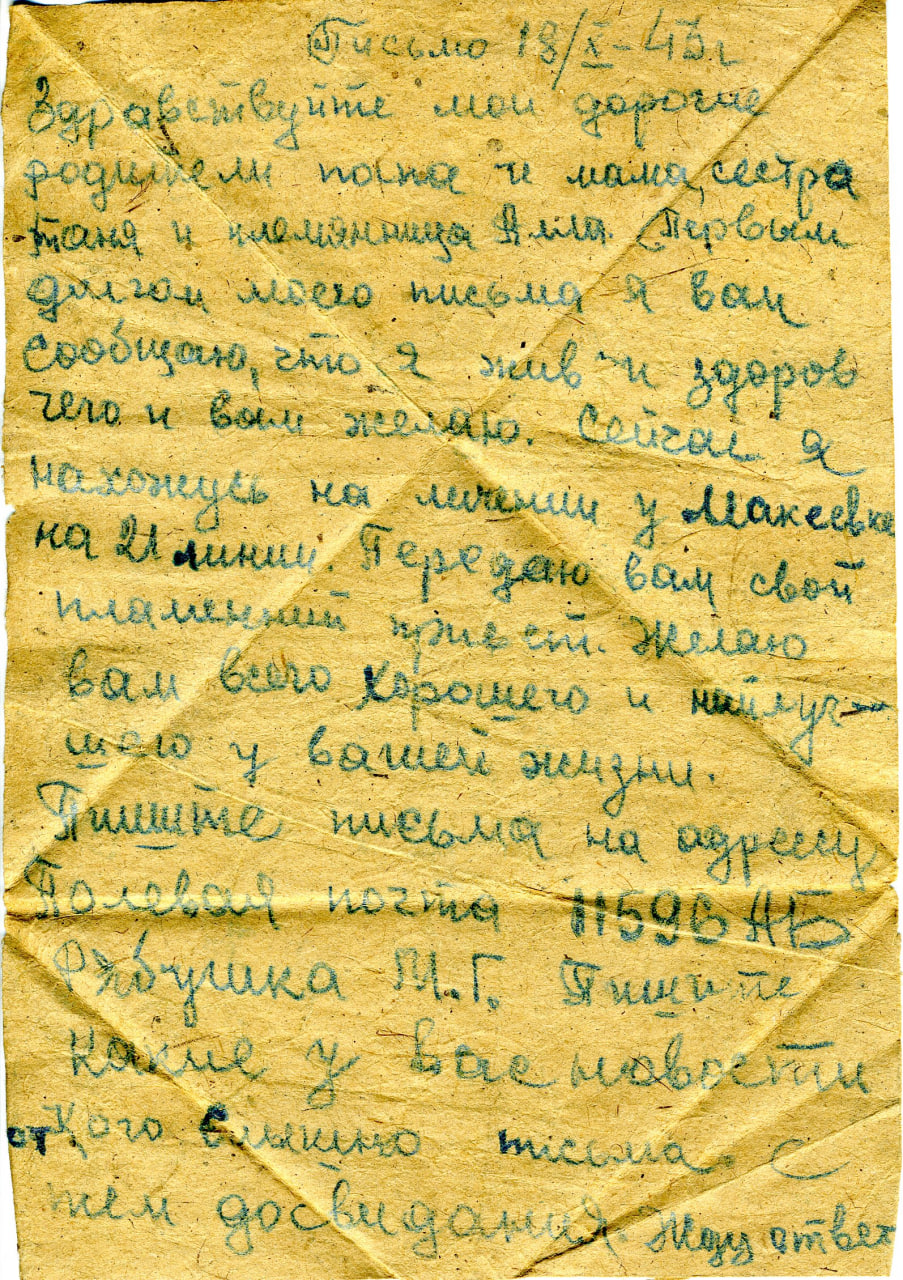 Письмо 18/X-43г
Здравствуйте мои дорогие
родители папа и мама, сестра
таня и племянница Алла. Первым
долгом моего письма я вам
сообщаю, что я жив и здоров
чего и вам желаю. Сейчас я
нахожусь на лечении у Макеевке
на 21 линии. Передаю вам свой
пламенный привет. Желаю
вам всего хорошего и найлуч-
шого у вашей жизни.
Пишите письма на адресу
Полевая почта 11596 АБ
Рябушка М.Г. Пишите
какие у вас новости
от кого слышно письма. С
тем досвидания. Жду ответ